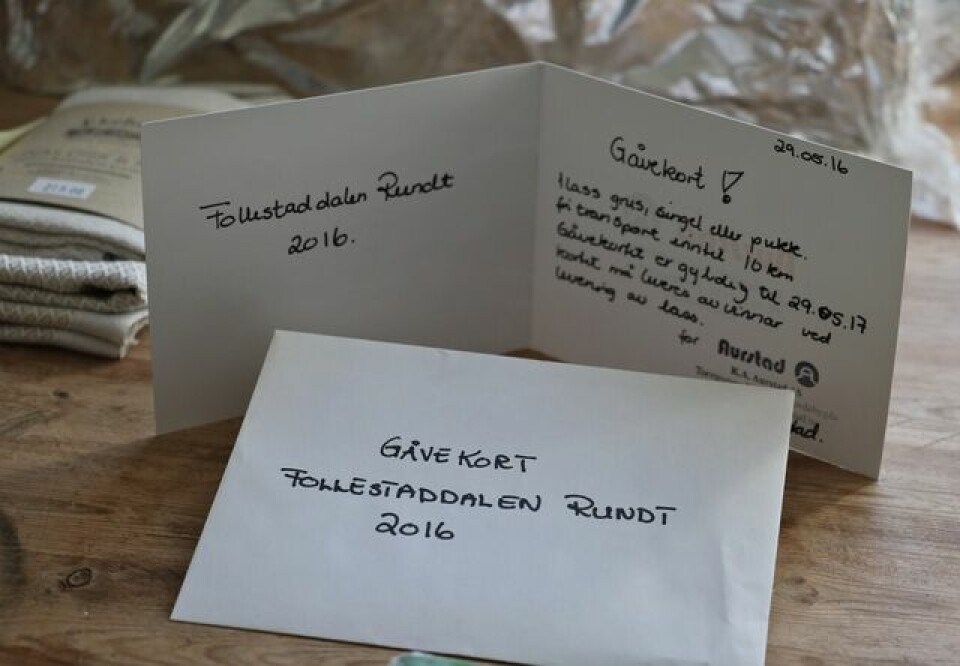 Follestaddalen Rundt
2016.
29.05.16
Gåvekort!
1 lass grus, singel eller pukk.
fri transport inntil 10 km
Gåvekortet er gyldig til 29.05.17
kortet må leveres av vinnar ved
levering av lass.
for Aurstad
K.A. Aurstad
GÅVEKORT
FOLLESTADDALEN RUNDT
2016